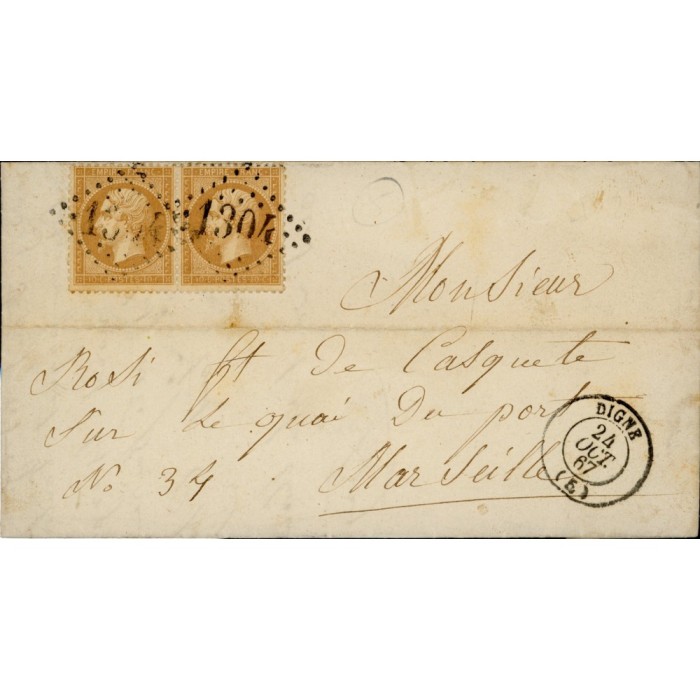 EMPIRE
1304 1304
Monsieur
Rosi ft de Casquete
Sur Le quai Du port
No 34
Marseille
DIGNE
24
OCT.
67
(5)